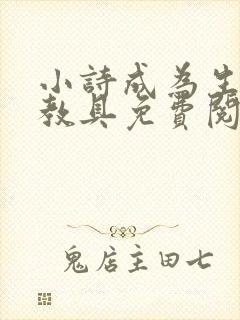 小詩成為生
教具免費閱
鬼店主田七